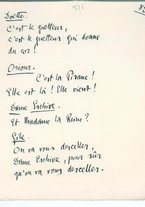 511
C'est le guetteur,
c'est le guetteur qui donne
du cor !
C'est la Pirame !
Elle est là ! Elle vient !
Et Madame la Reine ?
Gile
On va vous desceller,
Dame Eschive, pour sûr
qu'on va vous desceller.